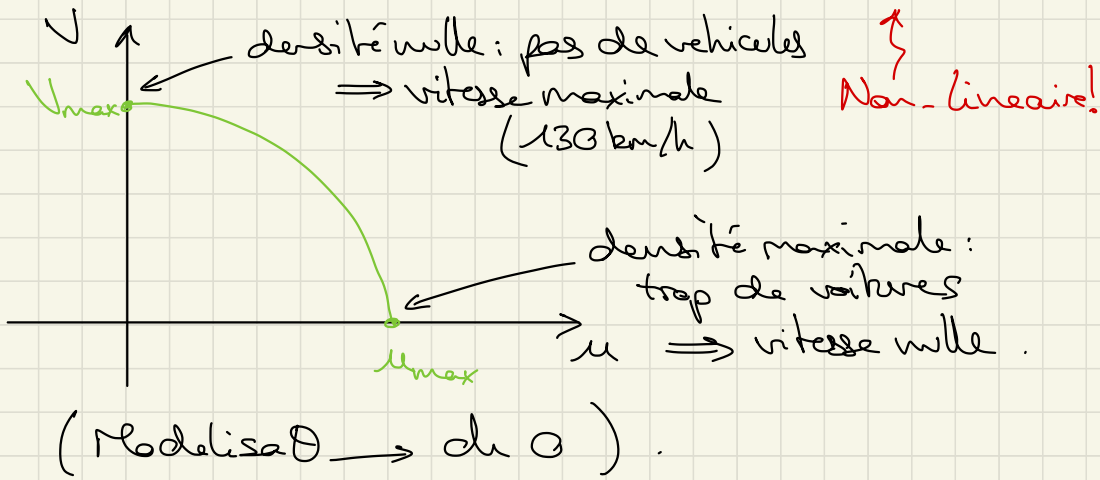 V
densité nulle : pas de vehicules
⟹ vitesse maximale
(130 km/h)
Non-lineaire!
Vmax
densité maximale :
trop de voitures
μ ⟹ vitesse nulle.
μmax
(Modelisaθ → ch 0).